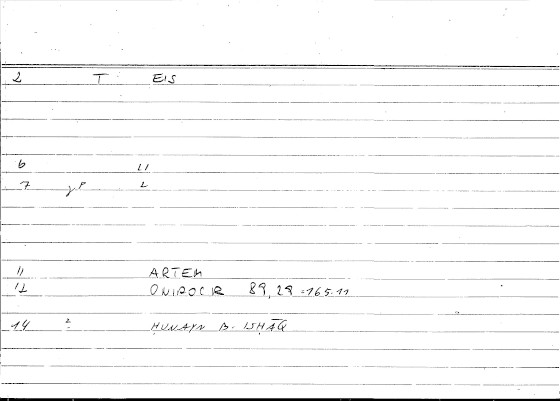 2 T EIS
6 LI
7 gP 2
11 ARTEM
12 ONIROCR 89,29 = 165.11
14 2 ḤUNAYN B. ISḤĀQ